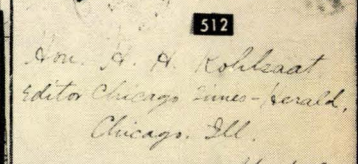 512
Hon. H. H. Kohlsaat
Editor Chicago Times-Herald,
Chicago. Ill.